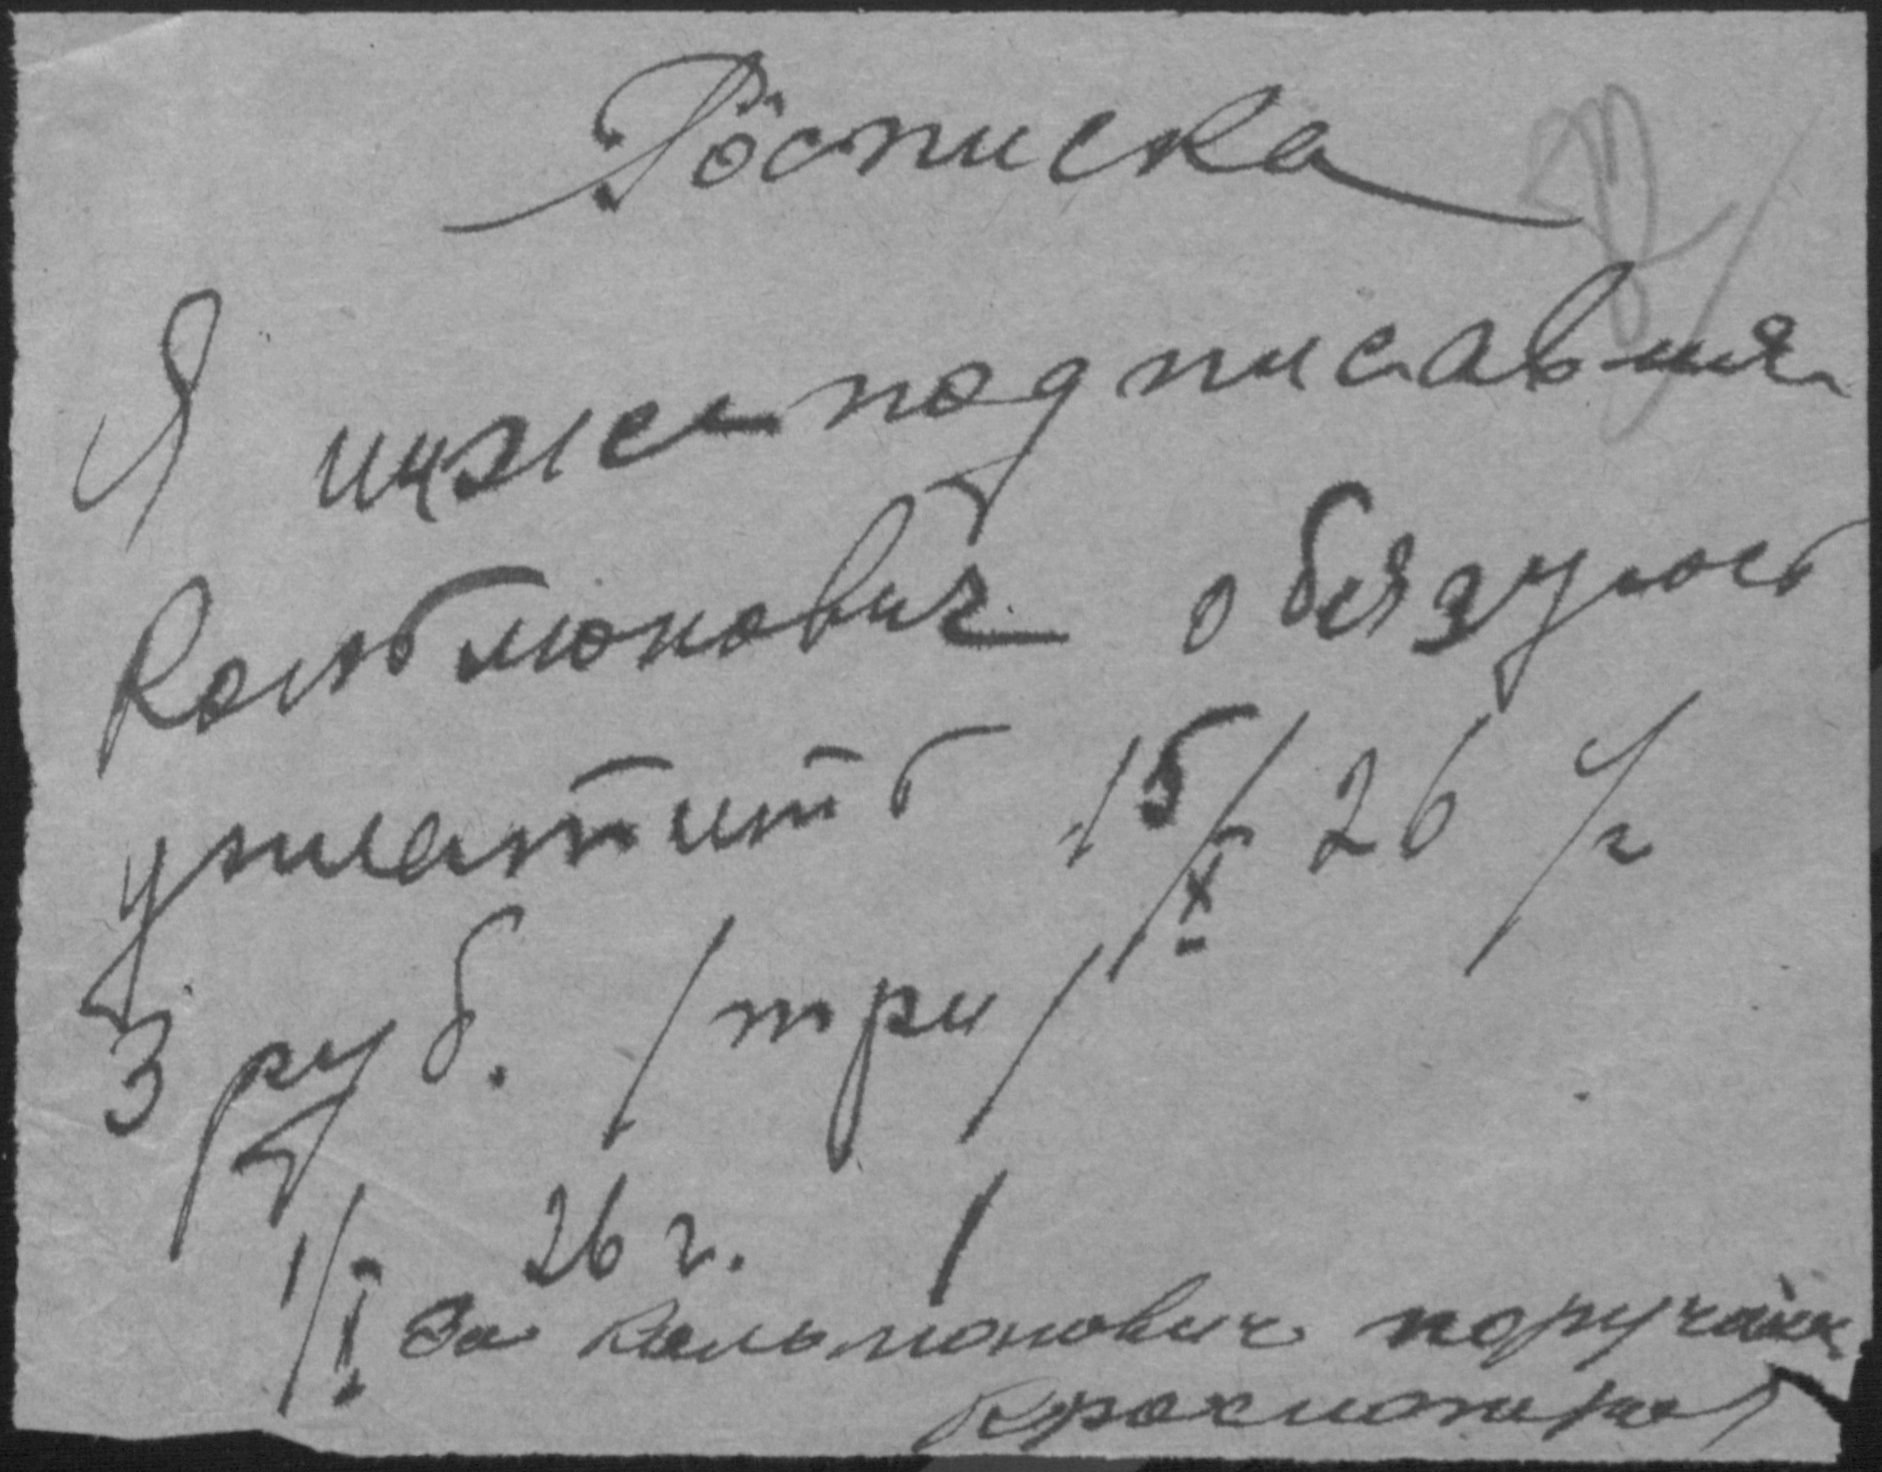 Росписка
Я нижеподписавшия
Кальмонович обязуюсь
уплатить 15/X 26 /г
3 руб. /три/
1/I 26 г.
За Кальмонович поручаюсь